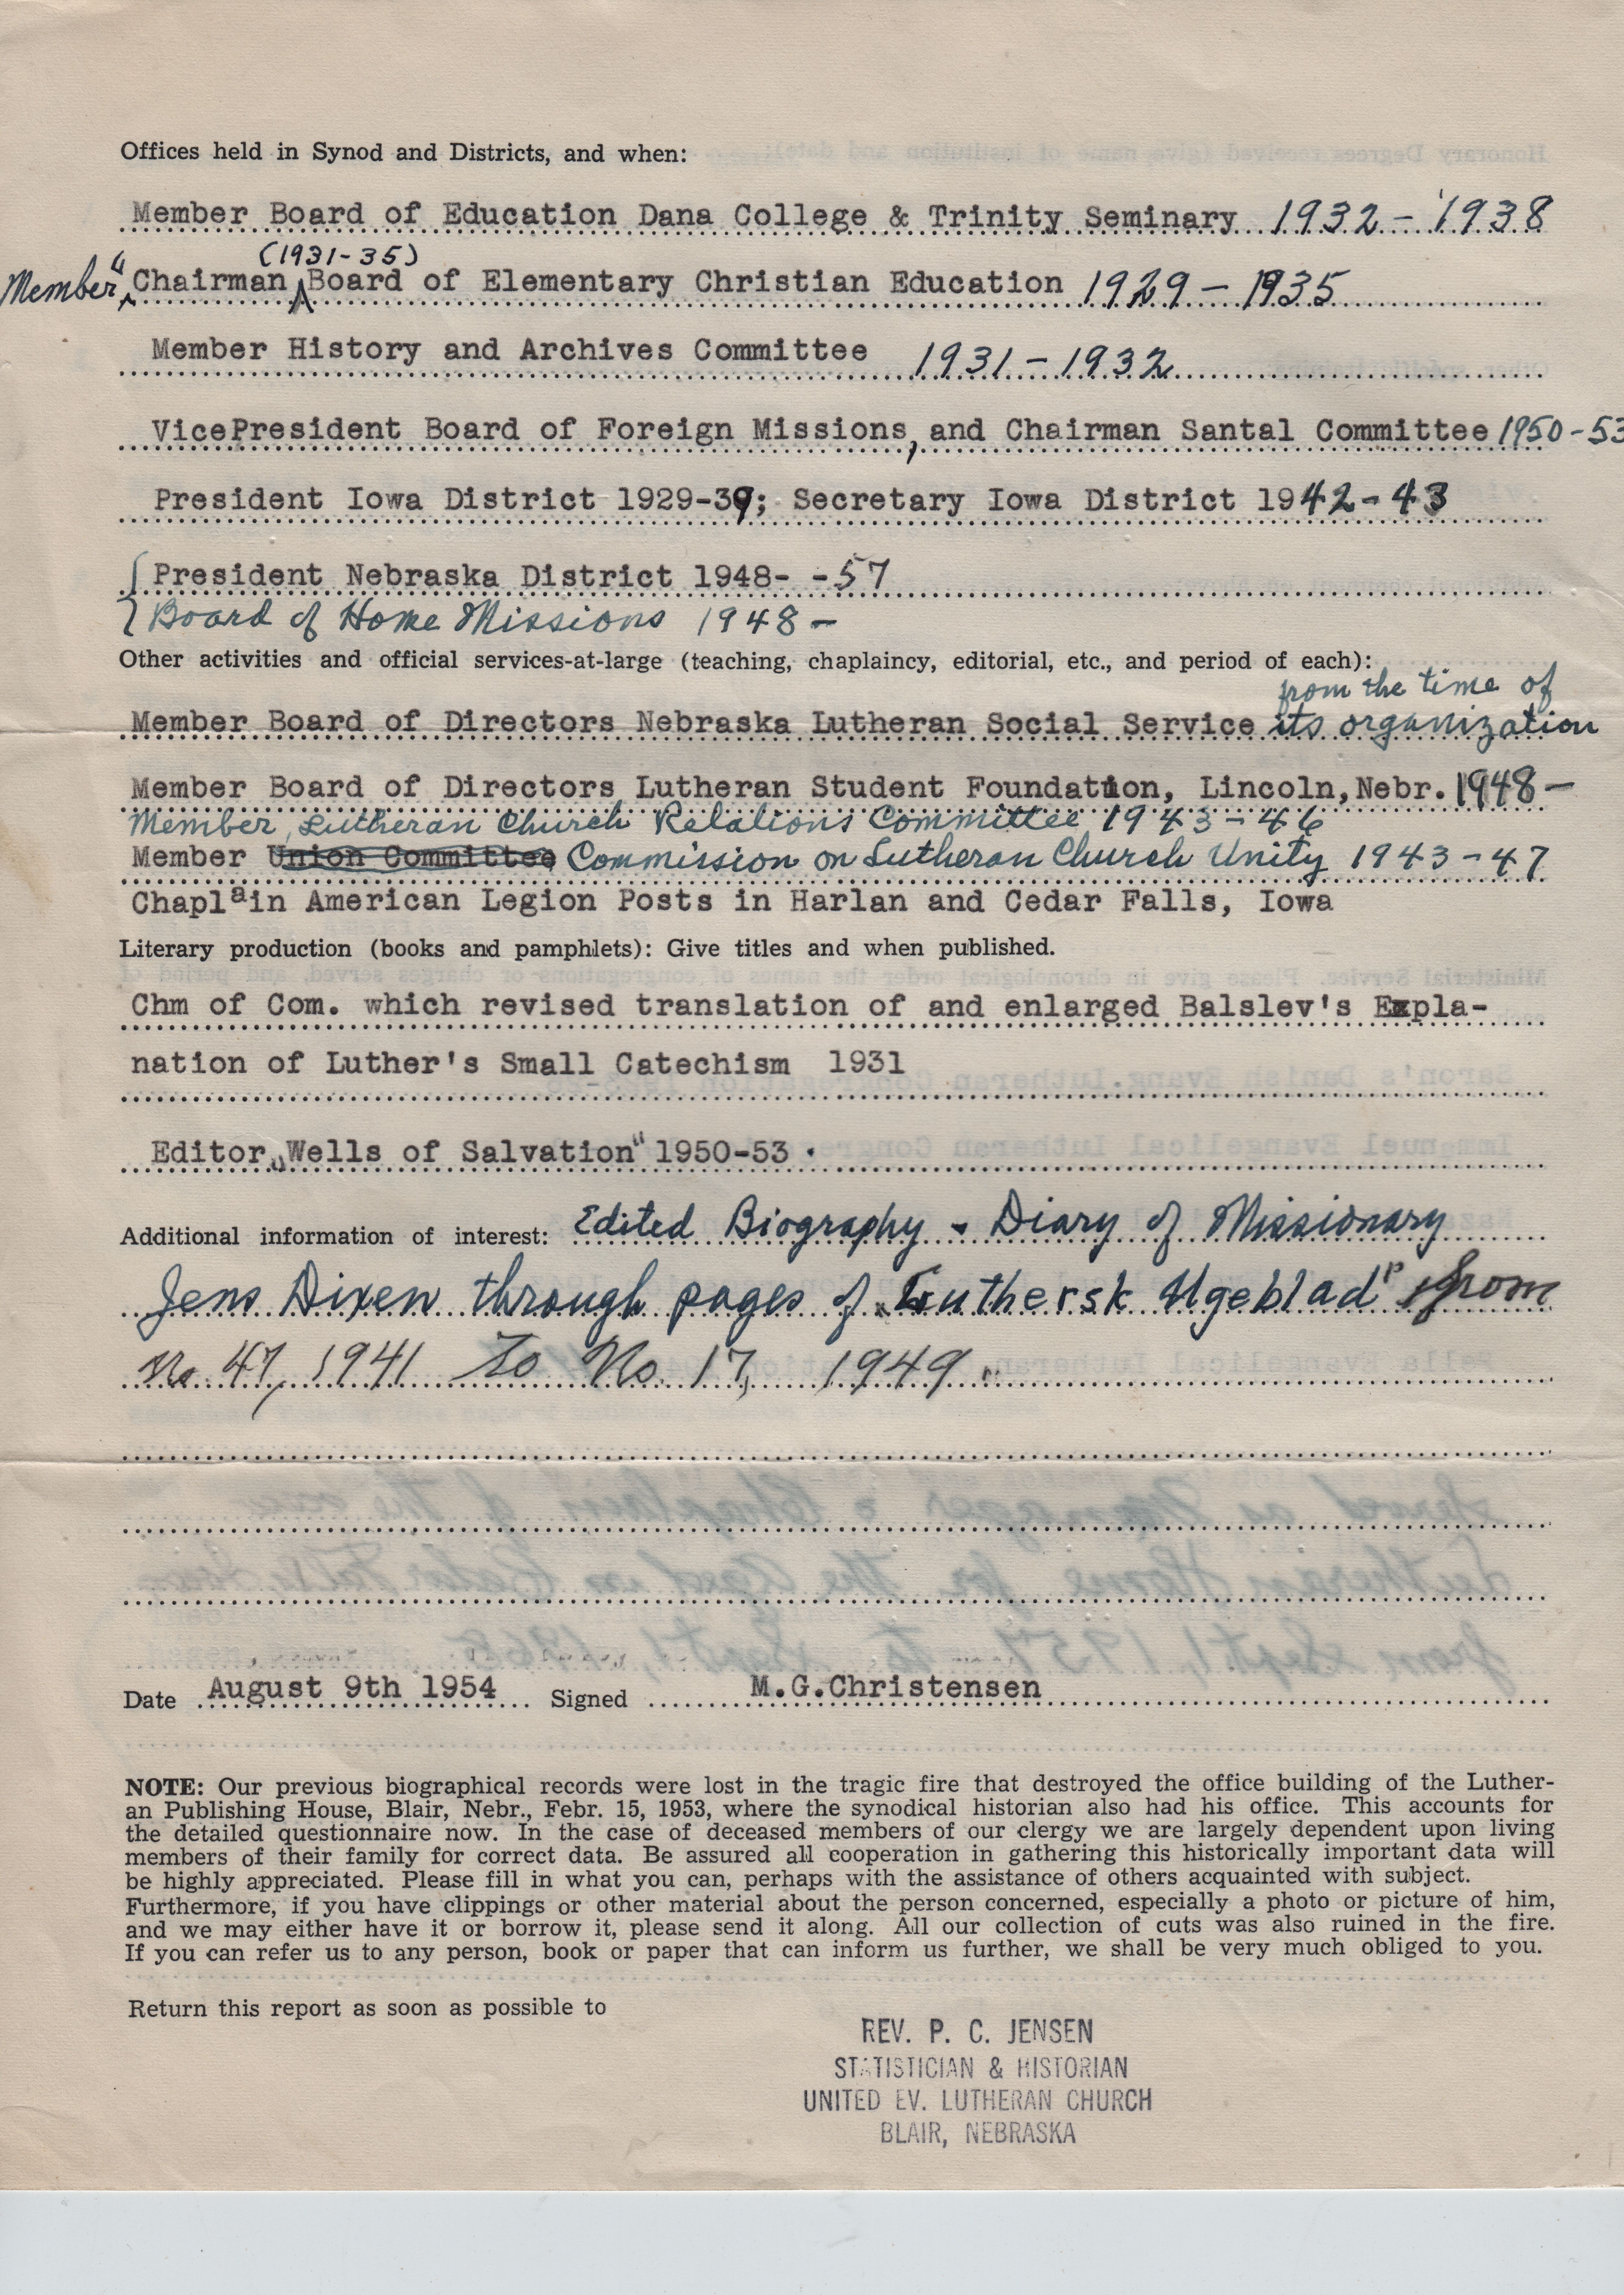 Offices held in Synod and Districts, and when:
Member Board of Education Dana College & Trinity Seminary 1932 - 1938
(1931-35)
Member " Chairman Board of Elementary Christian Education 1929 - 1935
Member History and Archives Committee 1931 - 1932
VicePresident Board of Foreign Missions, and Chairman Santal Committee 1950-53
President Iowa District 1929-39; Secretary Iowa District 1942-43
President Nebraska District 1948- -57
Board of Home Missions 1948 -
Other activities and official services-at-large (teaching, chaplaincy, editorial, etc., and period of each):
from the time of
Member Board of Directors Nebraska Lutheran Social Service its organization
Member Board of Directors Lutheran Student Foundation, Lincoln, Nebr. 1948 -
Member, Lutheran Church Relations Committee 1943-46
Member Union Committee Commission on Lutheran Church Unity 1943-47
Chaplain American Legion Posts in Harlan and Cedar Falls, Iowa
Literary production (books and pamphlets): Give titles and when published.
Chm of Com. which revised translation of and enlarged Balslev's Expla-
nation of Luther's Small Catechism 1931
Editor „Wells of Salvation" 1950-53 .
Additional information of interest: Edited Biography - Diary of Missionary
Jens Dixen through pages of „Luthersk Ugeblad" from
No. 47, 1941 to No. 17, 1949.
Date August 9th 1954 Signed M.G.Christensen
NOTE: Our previous biographical records were lost in the tragic fire that destroyed the office building of the Luther-
an Publishing House, Blair, Nebr., Febr. 15, 1953, where the synodical historian also had his office. This accounts for
the detailed questionnaire now. In the case of deceased members of our clergy we are largely dependent upon living
members of their family for correct data. Be assured all cooperation in gathering this historically important data will
be highly appreciated. Please fill in what you can, perhaps with the assistance of others acquainted with subject.
Furthermore, if you have clippings or other material about the person concerned, especially a photo or picture of him,
and we may either have it or borrow it, please send it along. All our collection of cuts was also ruined in the fire.
If you can refer us to any person, book or paper that can inform us further, we shall be very much obliged to you.
Return this report as soon as possible to
REV. P. C. JENSEN
STATISTICIAN & HISTORIAN
UNITED EV. LUTHERAN CHURCH
BLAIR, NEBRASKA